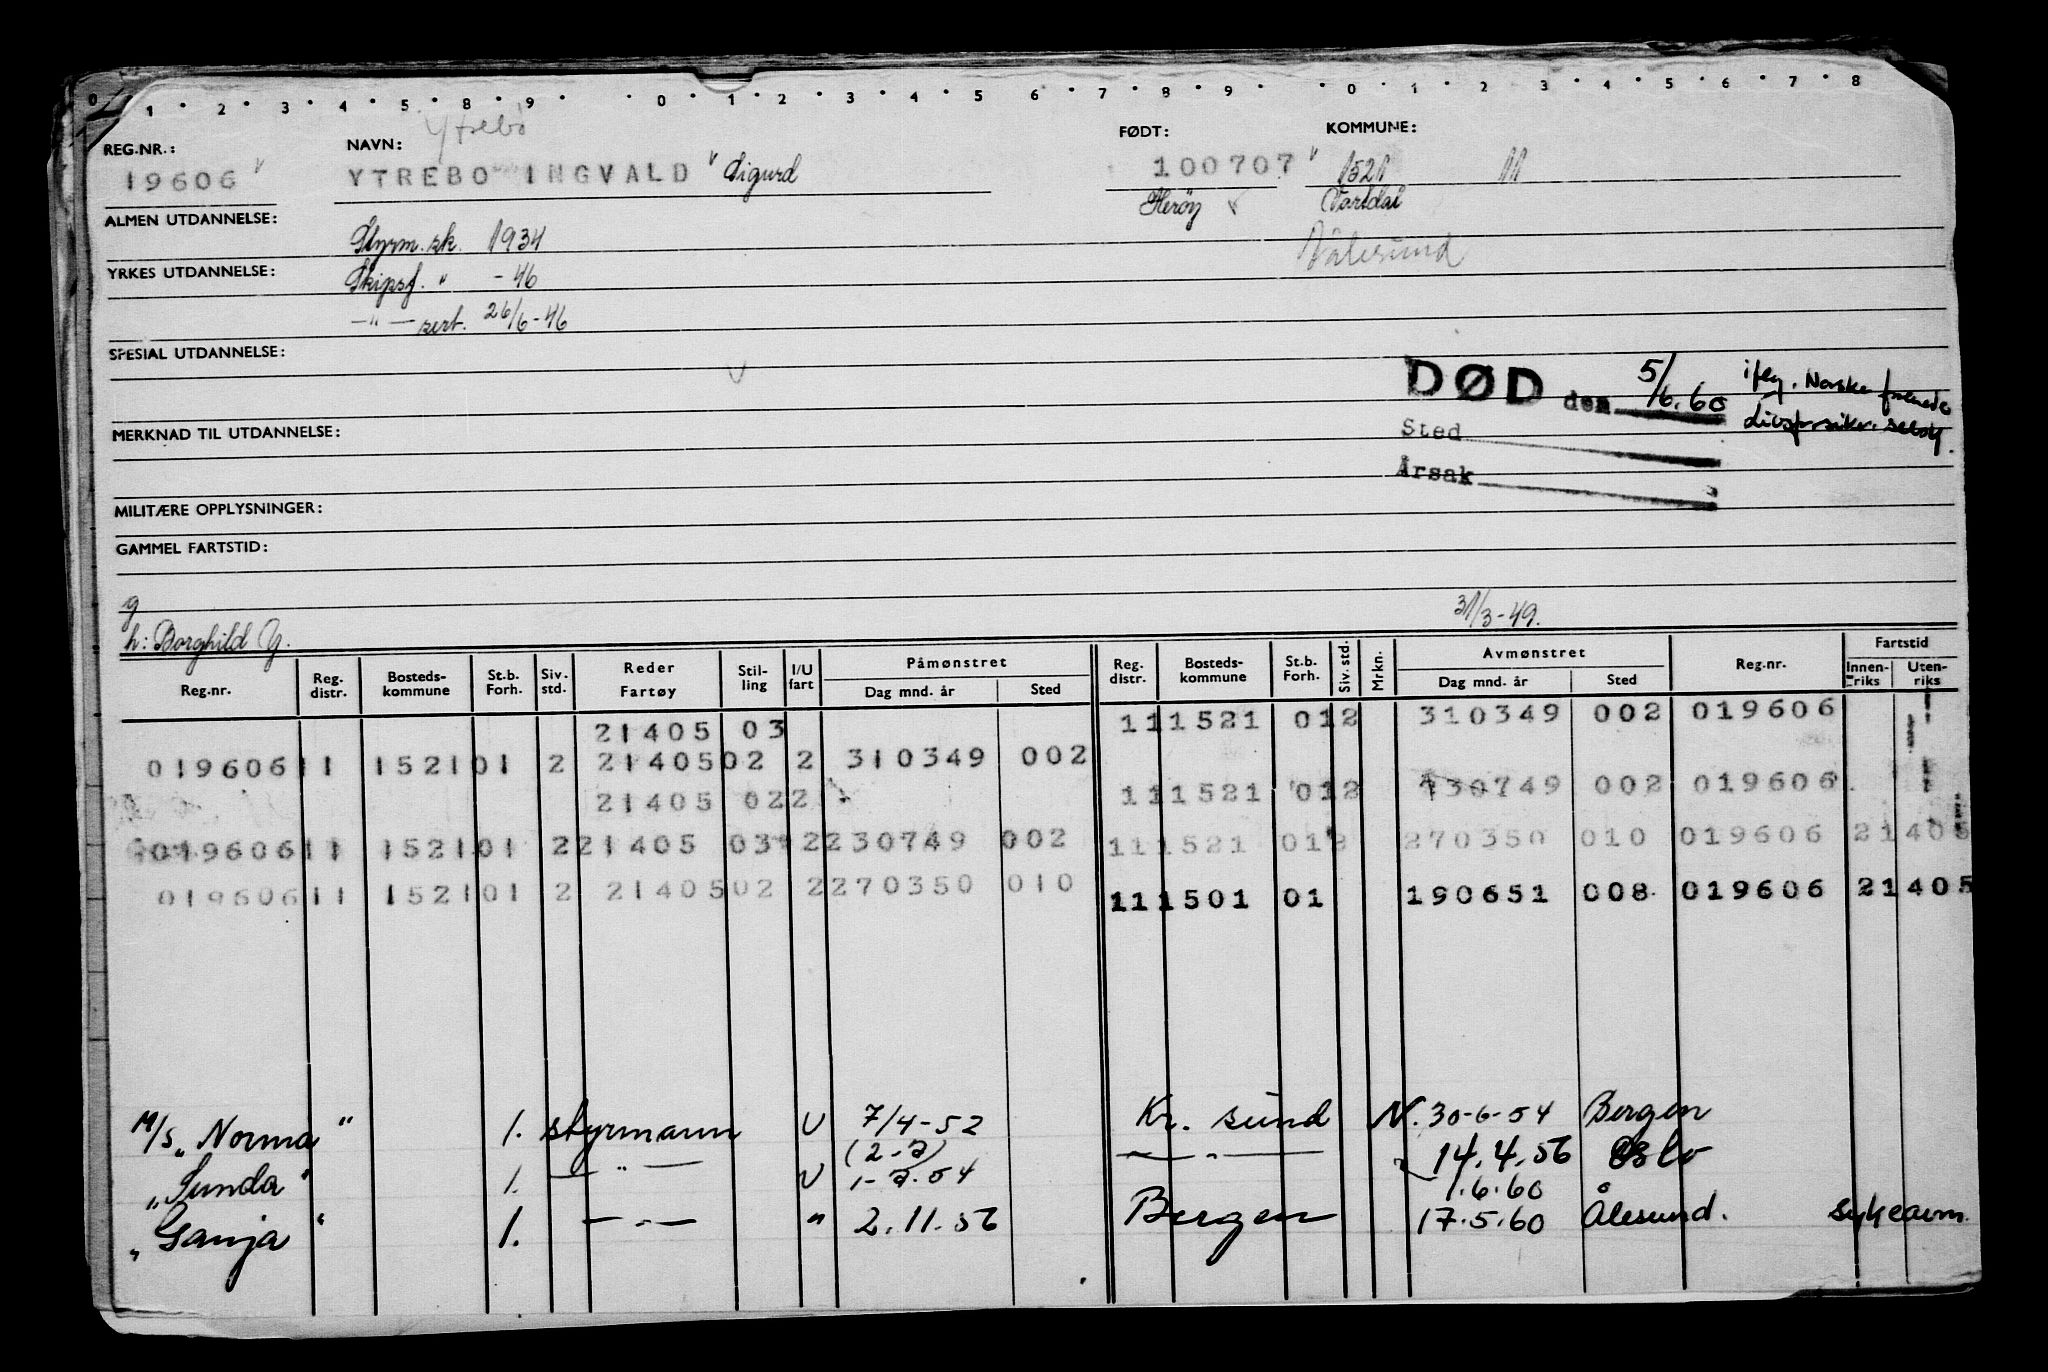 0 1 2 3 4 5 8 9 0 1 2 3 4 5 6 7 8 9 0 1 2 3 4 5 6 7 8
Ytrebø
REG.NR.: NAVN: FØDT: KOMMUNE:
19606 YTREBO INGVALD Sigurd 100707 1521 11
Herøy Vartdal
ALMEN UTDANNELSE:
Styrm. sk. 1934
Ålesund
YRKES UTDANNELSE: Skipsf. " - 46
—"— sert. 26/6-46
SPESIAL UTDANNELSE:
DØD den 5/6.60 ifлg. Norske forenede
Sted livsforsikr. selsk.
MERKNAD TIL UTDANNELSE:
Årsak
MILITÆRE OPPLYSNINGER:
GAMMEL FARTSTID:
g
31/3-49.
h: Borghild Y.
Reg.nr. Reg. distr. Bosteds-kommune St.b. Forh. Siv. std. Reder Fartøy Stil-ling I/U fart Påmønstret Dag mnd. år Sted Reg. distr. Bosteds-kommune St.b. Forh. Siv. std. Mrkn. Avmønstret Dag mnd. år Sted Reg.nr. Fartstid Innen-riks Uten-riks
21405 03 111521 012 310349 002 019606
01960611 152101 2 2140502 2 310349 002
21405 022 111521 012 130749 002 019606
01960611 152101 221405 03 2230749 002 111521 012 270350 010 019606 21405
01960611 152101 2 2140502 2270350 010 111501 01 190651 008 019606 21405
M/S "Norma" 1. styrmann U 7/4-52 Kr. sund N. 30-6-54 Bergen
(2-8)
"Sunda" 1. —"— U 1-8.54 —"— 14.4.56 Oslo
1.6.60
"Ganja" 1. —"— " 2.11.56 Bergen 17.5.60 Ålesund. sykeavm.